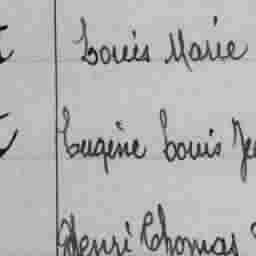 Louis Marie
Eugène Louis
Henri Thomas